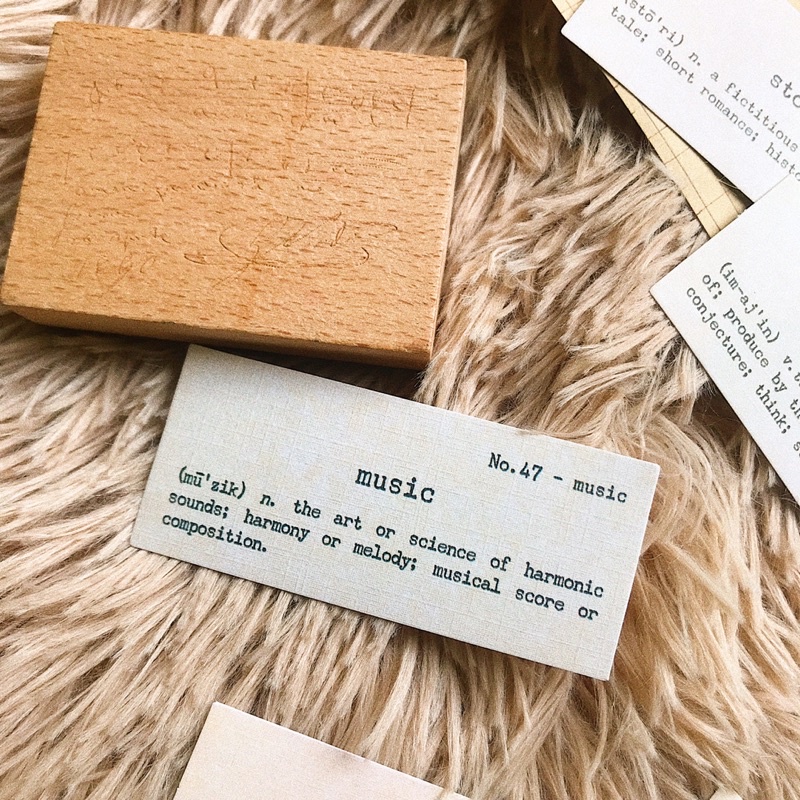 (stō'ri) n. a fictitious
tale; short romance;
(im-aj'in) v.
of; produce by
conjecture; think;
No.47 - music
music
(mū'zik) n. the art or science of harmonic
sounds; harmony or melody; musical score or
composition.